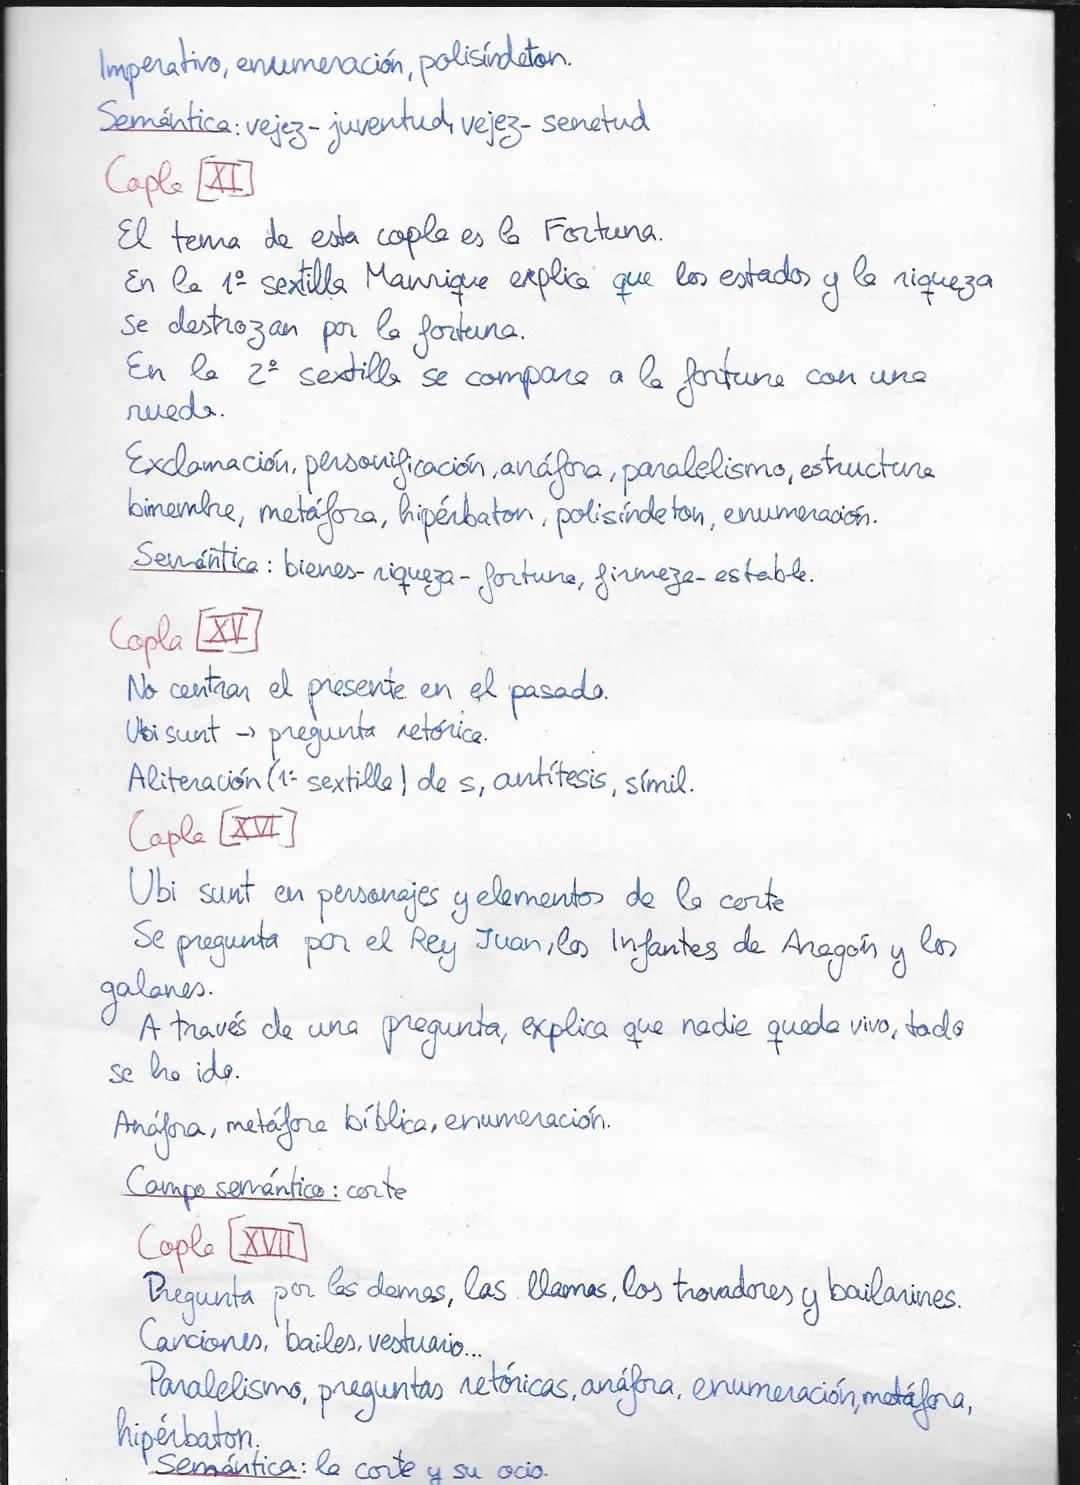 Imperativo, enumeración, polisíndeton.
Semántica: vejez - juventud, vejez - senetud
Copla [XI]
El tema de esta copla es la Fortuna.
En la 1ª sextilla Manrique explica que los estados y la riqueza
se destrozan por la fortuna.
En la 2ª sextilla se compara a la fortuna con una
rueda.
Exclamación, personificación, anáfora, paralelismo, estructura
bimembre, metáfora, hipérbaton, polisíndeton, enumeración.
Semántica: bienes - riqueza - fortuna, firmeza - estable.
Copla [XV]
No centran el presente en el pasado.
Ubi sunt → pregunta retórica.
Aliteración (1ª sextilla) de s, antítesis, símil.
Copla [XVI]
Ubi sunt en personajes y elementos de la corte
Se pregunta por el Rey Juan, los Infantes de Aragón y los
galanes.
A través de una pregunta, explica que nadie queda vivo, todo
se ha ido.
Anáfora, metáfora bíblica, enumeración.
Campo semántico: corte
Copla [XVII]
Pregunta por las damas, las llamas, los trovadores y bailarines.
Canciones, bailes, vestuario...
Paralelismo, preguntas retóricas, anáfora, enumeración, metáfora,
hipérbaton.
Semántica: la corte y su ocio.